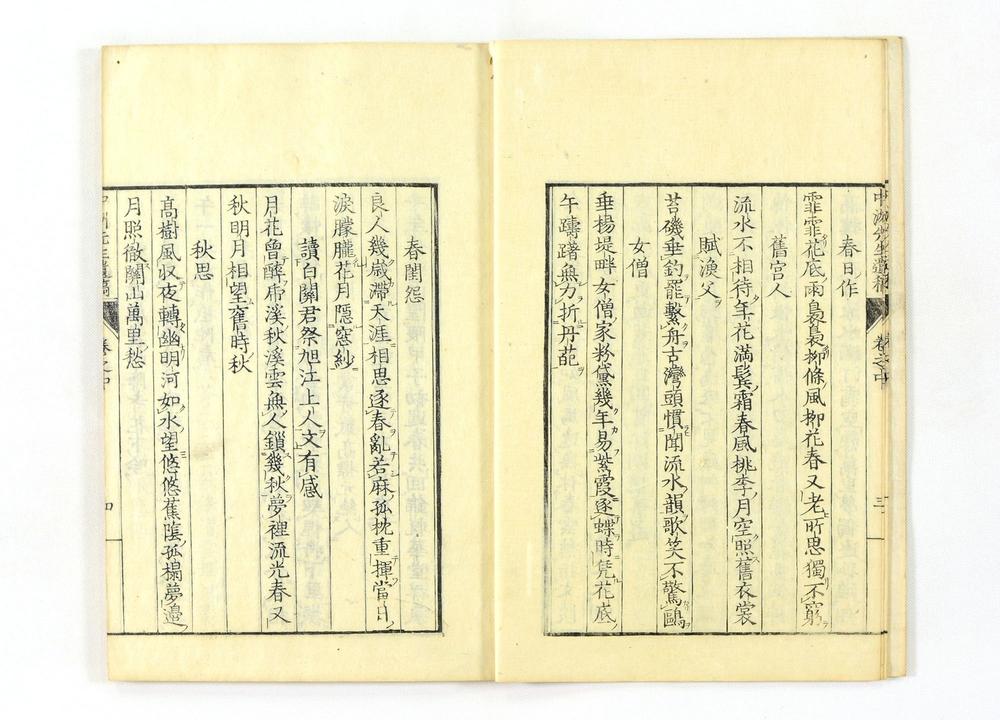 春日作
霏霏花底雨裊裊柳條風柳花春又老所思獨不窮
舊宮人
流水不相待年花滿鬂霜春風桃李月空照舊衣裳
賦漁父
苔磯垂釣罷繫舟古灣頭慣聞流水韻歌笑不驚鷗
女僧
垂楊堤畔女僧家粉黛幾年易紫霞逐蝶時凭花底
午躊躇無力折丹葩
卷之中
三
春閨怨
良人幾歲滯天涯相思逐春亂若麻孤枕重揮當日
淚朦朧花月隱窓紗
讀白關君祭旭江上人文有感
月花曾醉虎溪秋溪雲無人鎖幾秋夢裡流光春又
秋明月相望舊時秋
秋思
高樹風収夜轉幽明河如水望悠悠蕉陰孤榻夢邊
月照徹關山萬里愁
卷之中
四